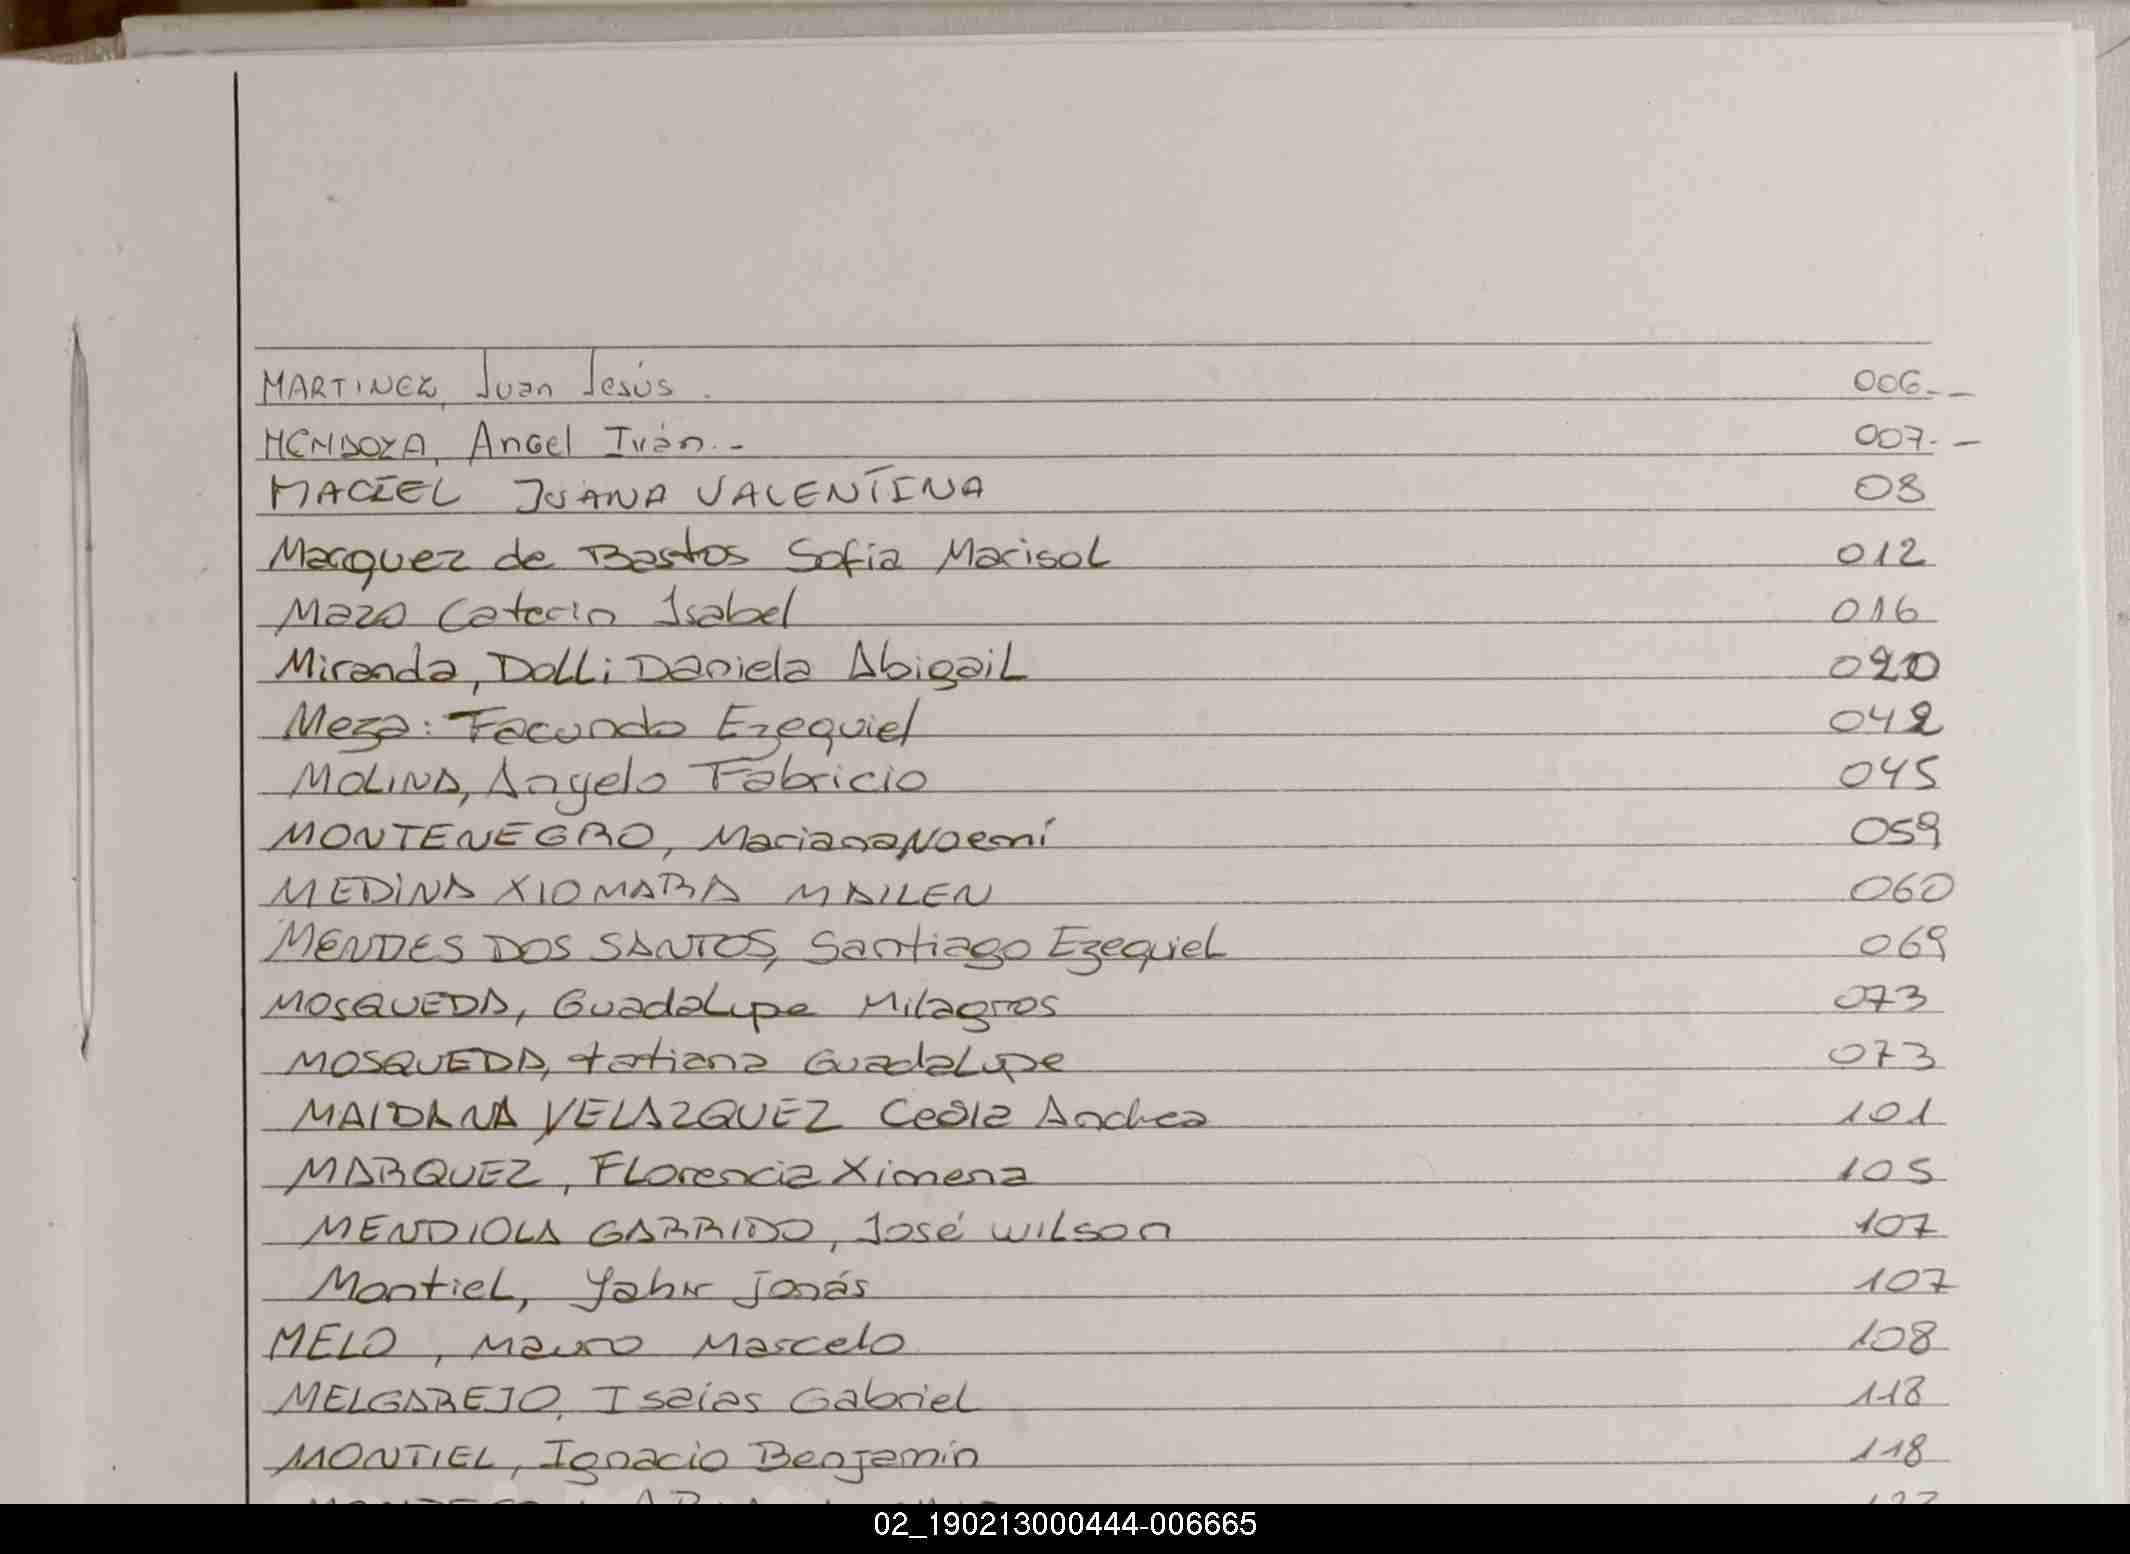 MARTINEZ, Juan Jesús. 006.-
MENDOZA, Angel Iván.- 007.-
MACIEL JUANA VALENTINA 08
Marquez de Bastos Sofia Marisol 012
Mazo Caterin Isabel 016
Miranda, Dolli Daniela Abigail 020
Meza: Facundo Ezequiel 042
MOLINA, Angelo Fabricio 045
MONTENEGRO, Mariana Noemí 059
MEDINA XIOMARA MAILEN 060
MENDES DOS SANTOS, Santiago Ezequiel 069
MOSQUEDA, Guadalupe Milagros 073
MOSQUEDA, tatiana Guadalupe 073
MAIDANA VELAZQUEZ Andrea 101
MARQUEZ, Florencia Ximena 105
MENDIOLA GARRIDO, José Wilson 107
Montiel, Yahir Jonás 107
MELO, Mauro Marcelo 108
MELGAREJO, Isaías Gabriel 118
MONTIEL, Ignacio Benjamín 118
02_190213000444-006665